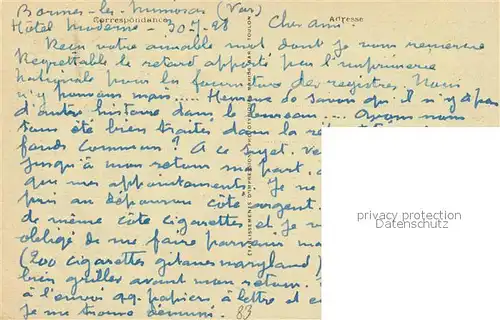 Bormes-les-Mimosas (Var)
Correspondance
Adresse
Hôtel Moderne - 30-7-28 Cher ami.
Reçu votre aimable mot dont je vous remercie
Regrettable le retard apporté par l'imprimerie
Nationale pour les fournitures des registres. Nous
n'y pouvons mais..... Heureux de savoir qu'il n'y a pas
d'autre histoire dans le bureau.... Avons nous
tous été bien traités dans la
fonds commun? A ce sujet.
jusqu'à mon retour ma part,
que mes appointements. Je ne
pris au dépourvu côté argent.
de même côté cigarettes et je
obligé de me faire parvenir
(200 cigarettes gitanes maryland)
bien griller avant mon retour.
à l'envoi qq. papiers à lettre et
je me trouve démuni.
83
privacy protection
Datenschutz